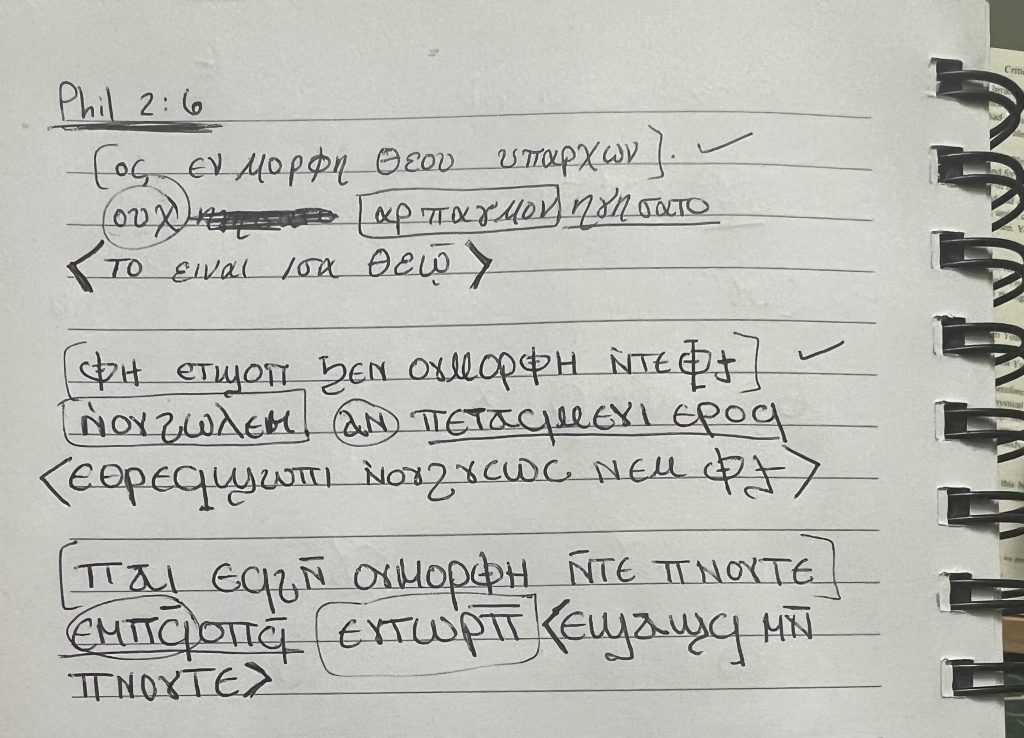 Phil 2:6
[ος εν μορφη θεου υπαρχων].
ουχ αρπαγμον ηγησατο
<το ειναι ισα θεω̄>
[ⲫⲏ ⲉⲧϣⲟⲡ ϧⲉⲛ ⲟⲩⲙⲟⲣⲫⲏ ⲛ̀ⲧⲉ ⲫϯ]
ⲛ̀ⲟⲩϩⲱⲗⲉⲙ ⲁⲛ ⲡⲉⲧⲁϥⲙⲉⲩⲓ ⲉⲣⲟϥ
<ⲉⲑⲣⲉϥϣⲱⲡⲓ ⲛ̀ⲟⲩϩⲩⲥⲱⲥ ⲛⲉⲙ ⲫϯ>
[ⲡⲁⲓ ⲉϥϩⲛ̄ ⲟⲩⲙⲟⲣⲫⲏ ⲛ̄ⲧⲉ ⲡⲛⲟⲩⲧⲉ]
ⲉⲙⲡϥ̄ⲟⲡϥ̄ ⲉⲩⲧⲱⲣⲡ̄ <ⲉϣⲁϣϥ ⲙⲛ̄
ⲡⲛⲟⲩⲧⲉ>